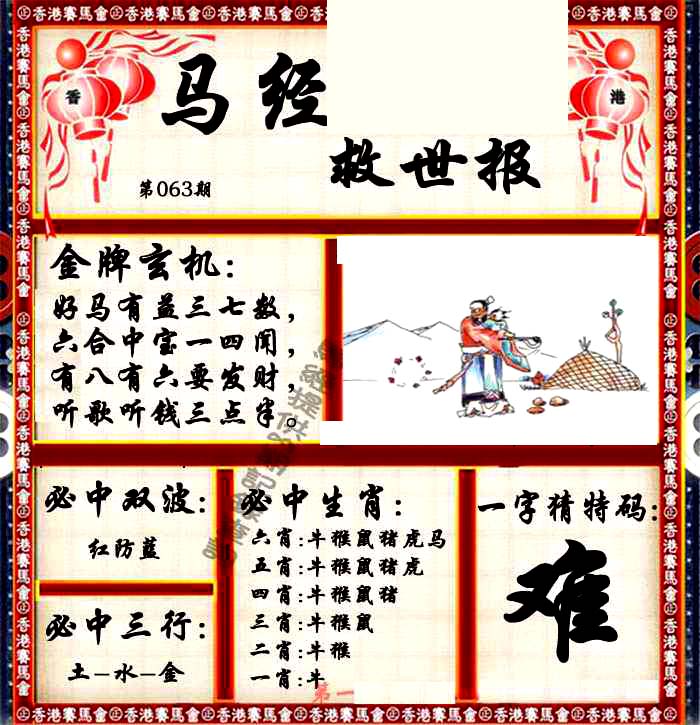 香港賽馬會
香
港
马经
救世报
第063期
金牌玄机:
好马有益三七数,
六合中宝一四闻,
有八有六要发财,
听歌听钱三点半。
必中双波:
红防蓝
必中三行:
土-水-金
必中生肖:
六肖:牛猴鼠猪虎马
五肖:牛猴鼠猪虎
四肖:牛猴鼠猪
三肖:牛猴鼠
二肖:牛猴
一肖:牛
第一
一字猜特码:
难